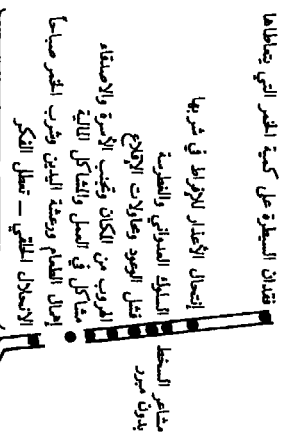 فقدان السيطرة على كمية الخمر التي يتعاطاها
إنتحال الأعذار للإفراط في شربها
السلوك العدواني والغطرسة
فشل الوعود ومحاولات الإقلاع
الهروب من المكان وتجنب الأسرة والاصدقاء
مشاكل في العمل والمشاكل المالية
إهمال الطعام ورعشة اليدين وشرب الخمر صباحاً
الانحلال الخلقي – تعطل الفكر
مشاعر السخط
بدون مبرر